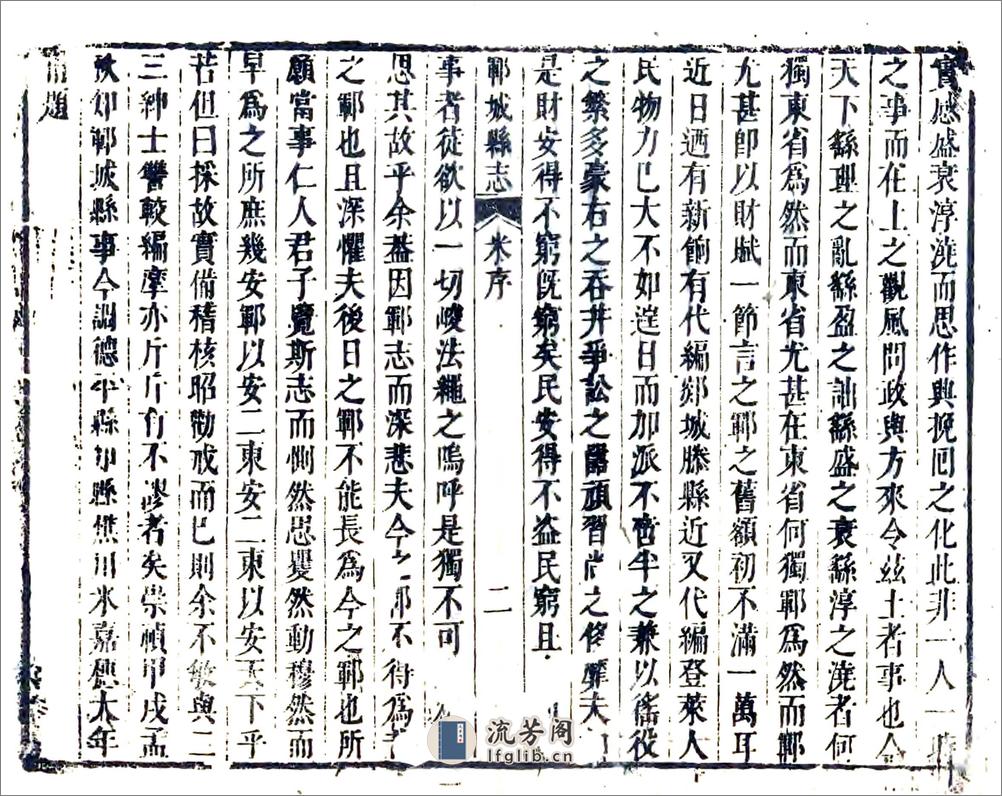 實感盛衰淳澆而思作興挽回之化此非一人一時
之事而在上之觀風問政與方來令茲土者事也今
天下繇理之亂繇盈之詘繇盛之衰繇淳之澆者何
獨東省爲然而東省尤甚在東省何獨鄆爲然而鄆
尤甚卽以財賦一節言之鄆之舊額初不滿一萬耳
近日迺有新餉有代編郯城滕縣近又代編登萊人
民物力已大不如逩日而加派不啻半之兼以徭役
之繁多豪右之吞并爭訟之嚚頑習尚之侈靡夫
是財安得不窮旣窮矣民安得不盗民窮且
鄆城縣志 米序 二
事者徒欲以一切峻法繩之嗚呼是獨不可
思其故乎余葢因鄆志而深悲夫今之鄆不得爲
之鄆也且深懼夫後日之鄆不能長爲今之鄆也所
願當事仁人君子覽斯志而惻然思戄然動穆然而
早爲之所庶幾安鄆以安二東安二東以安天下乎
若但曰採故實備稽核昭勸戒而已則余不敏與二
三紳士讐較編摩亦斤斤有不謬者矣崇禎甲戌孟
秋知鄆城縣事今調德平縣知縣焦川米嘉穗大年
甫題
流芳阁
lfglib.cn